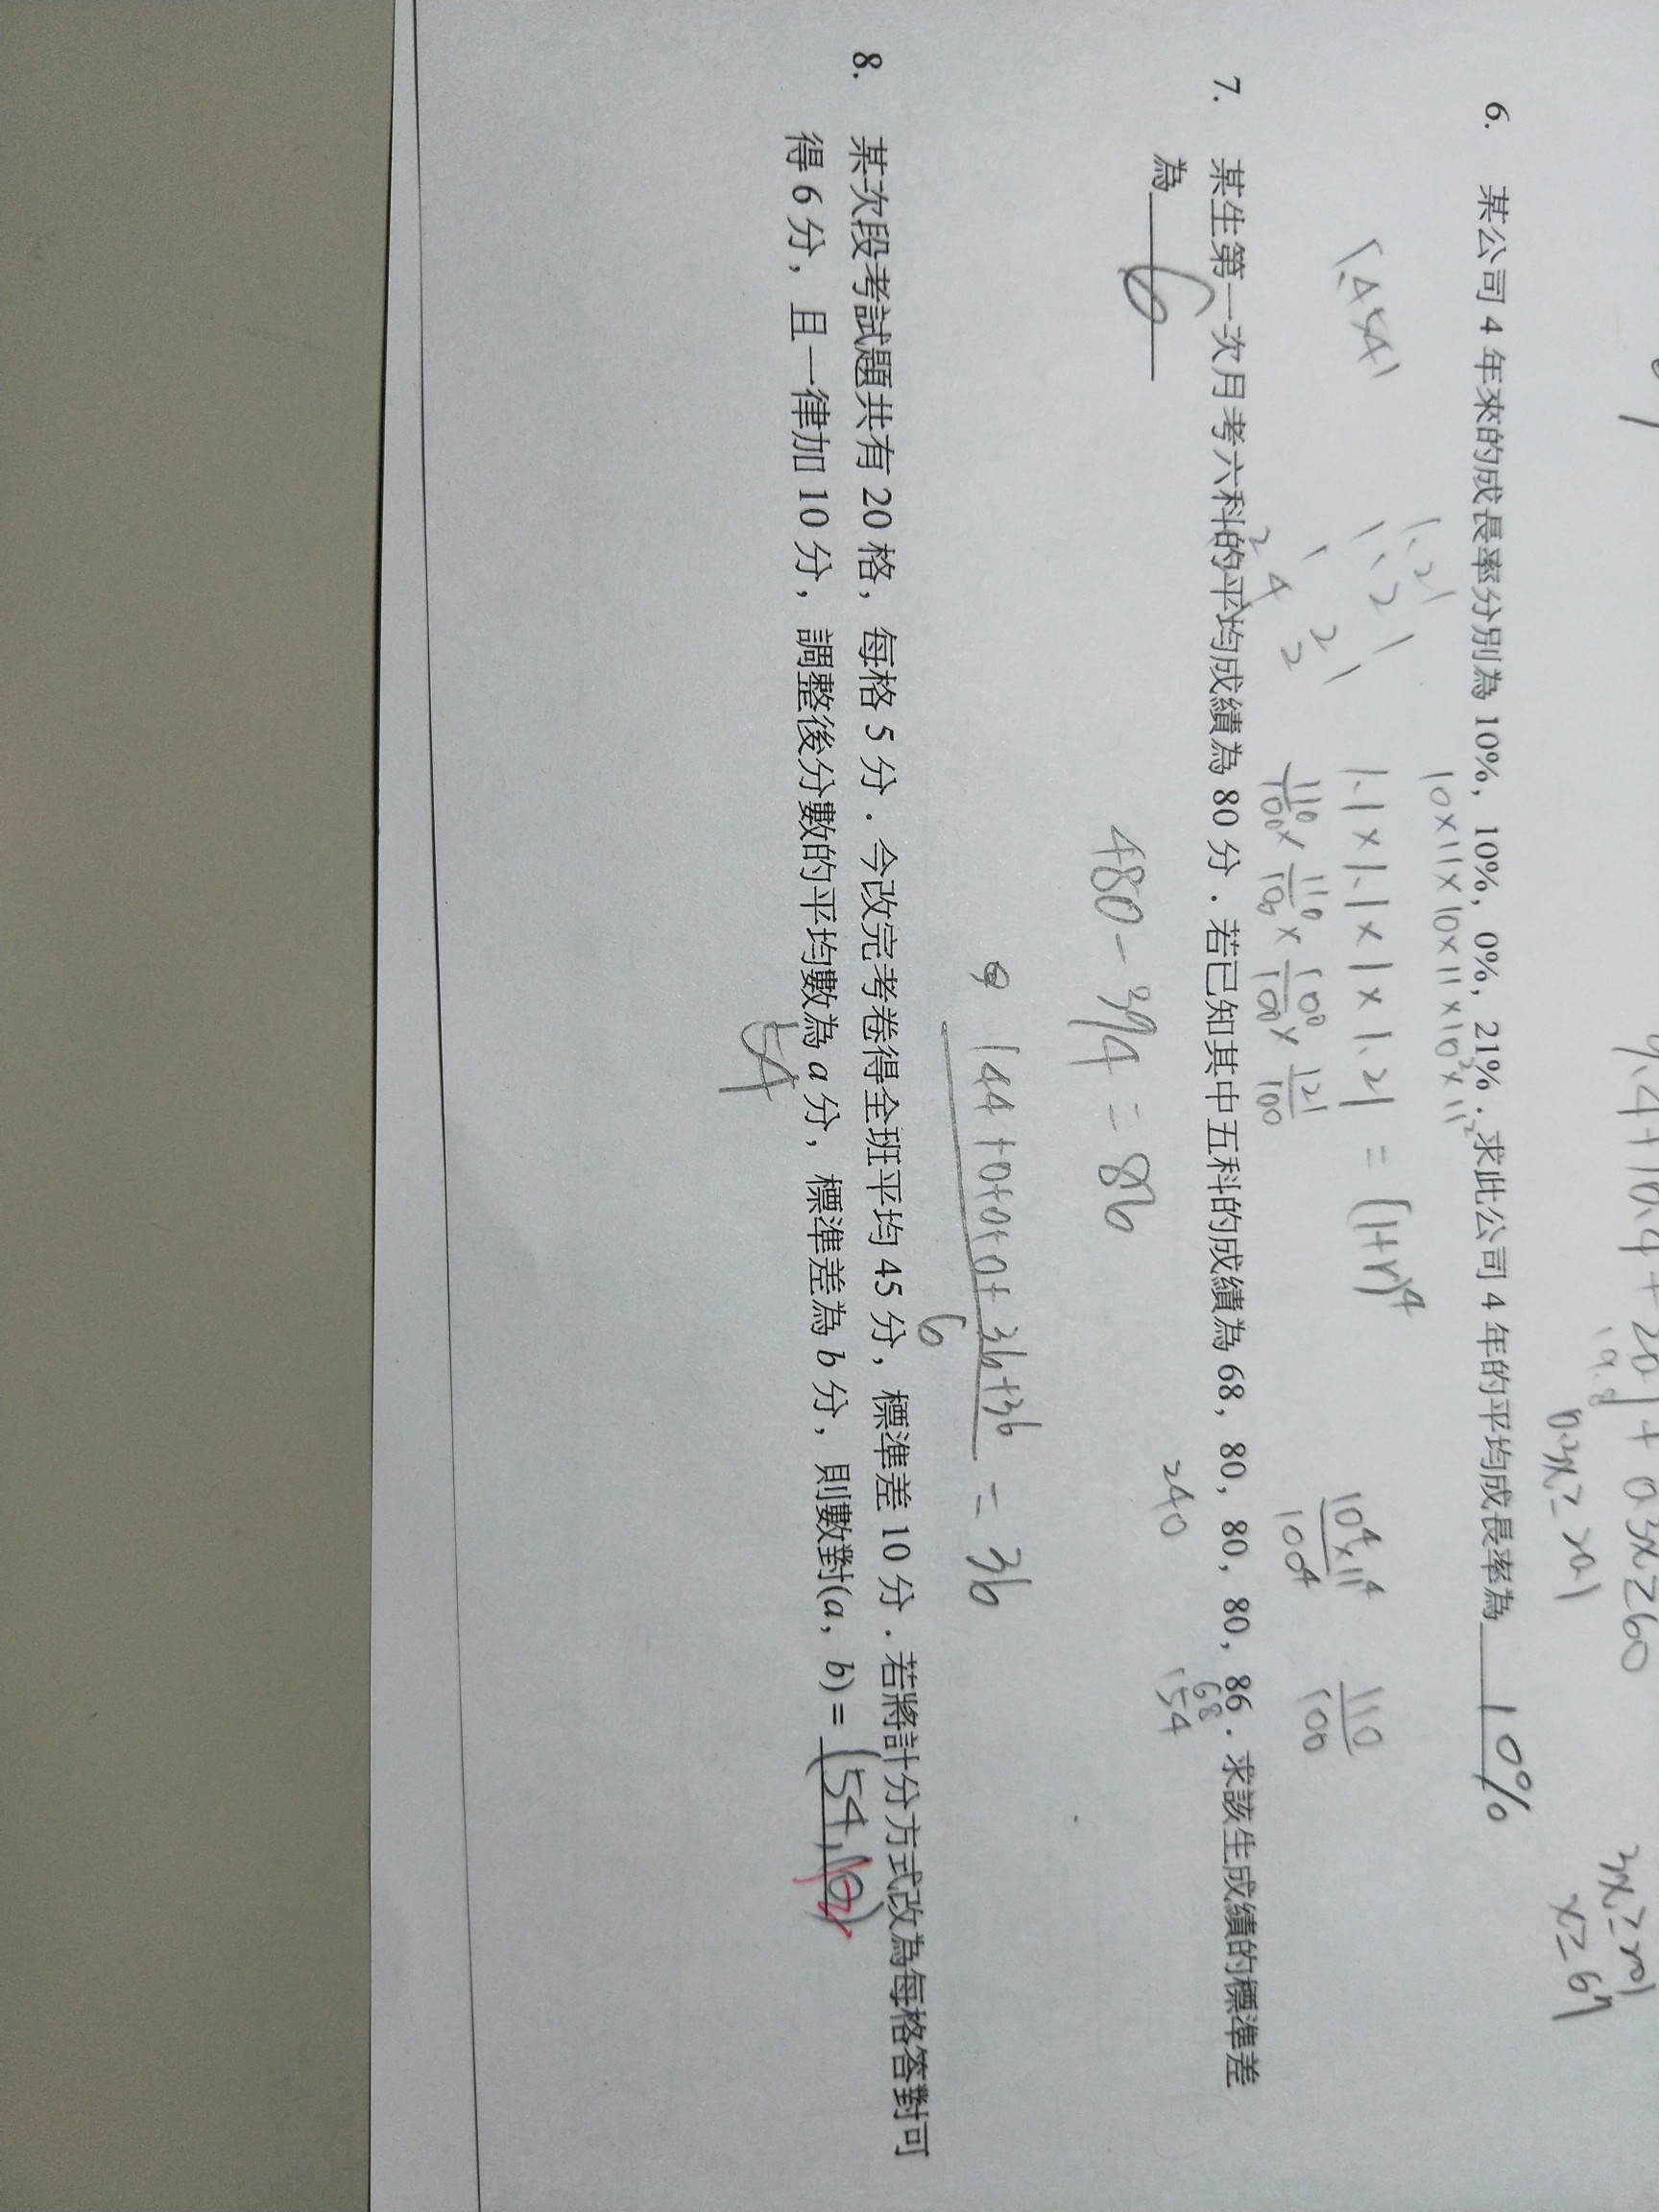 9.4+10.4+20.1+0.3x≥60
19.8
0.3x≥20.1
3x≥201
x≥67
6. 某公司 4 年來的成長率分別為 10%，10%，0%，21%．求此公司 4 年的平均成長率為 10%
10×11×10×11×10²×11²
1.21
1.21
1.4641
1.1×1.1×1×1.21=(1+r)⁴
110/100×110/100×100/100×121/100
10⁴×11⁴/100⁴
110/100
7. 某生第一次月考六科的平均成績為 80 分．若已知其中五科的成績為 68，80，80，80，86．求該生成績的標準差
為 6
68
154
240
480-394=86
144+0+0+0+36+36
6
=36
8. 某次段考試題共有 20 格，每格 5 分．今改完考卷得全班平均 45 分，標準差 10 分．若將計分方式改為每格答對可
得 6 分，且一律加 10 分，調整後分數的平均數為 a 分，標準差為 b 分，則數對(a，b)= (54,10)
12
54